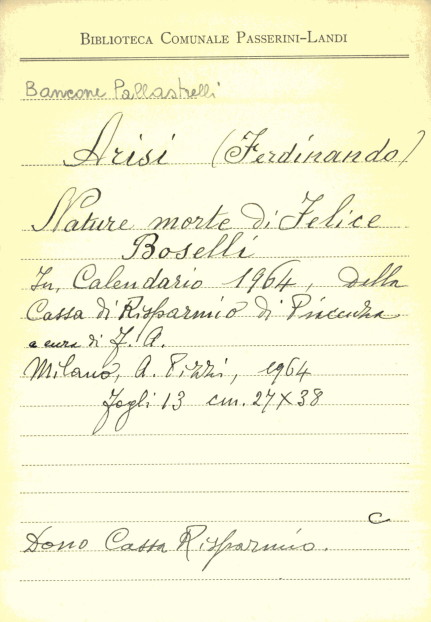 BIBLIOTECA COMUNALE PASSERINI-LANDI
Bancone Pallastrelli
Arisi (Ferdinando)
Nature morte di Felice
Boselli
In, Calendario 1964, Della
Cassa di Risparmio di Piacenza
a cura di F. A.
Milano, A. Pizzi, 1964
Fogli 13 cm. 27×38
C
Dono Cassa Risparmio.